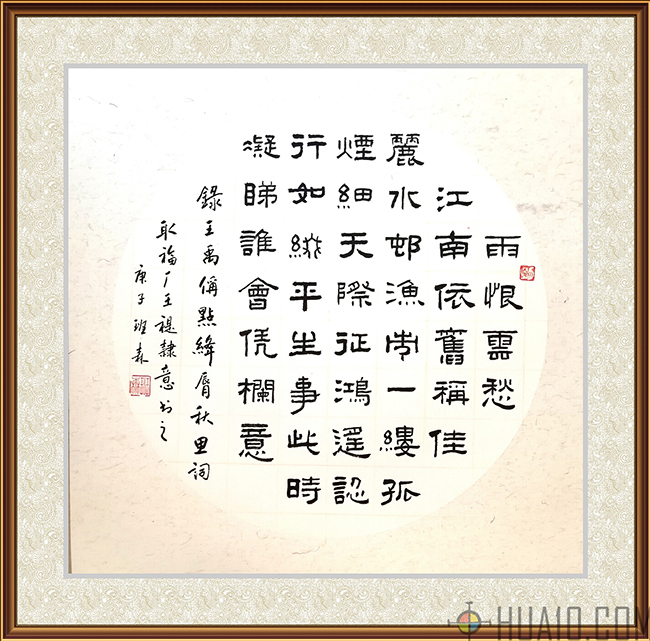 雨恨雲愁
江南依舊稱佳
麗水邨漁市一縷孤
煙細天際征鴻遥認
行如綴平生事此時
凝睇誰會凭欄意
錄王禹偁點絳脣秋思詞
取福厂王禔隸意书之
庚子班森
HUA10.COM